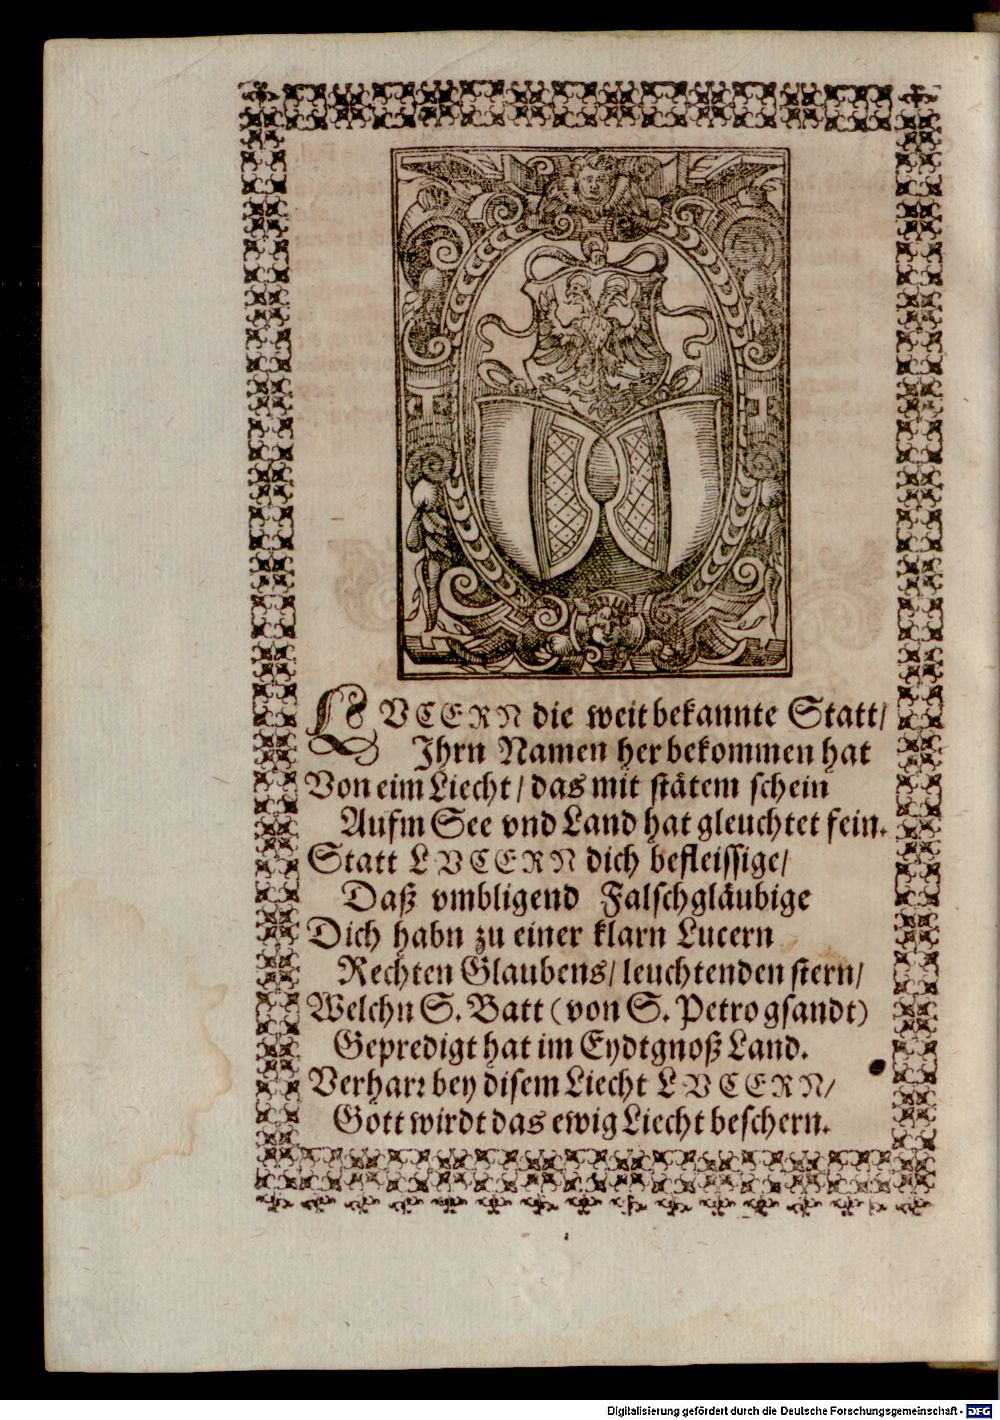 LVCERN die weit bekannte Statt/
Ihrn Namen her bekommen hat
Von eim Liecht/ das mit stätem schein
Aufm See vnd Land hat gleuchtet fein.
Statt LVCERN dich befleissige/
Daß vmbligend Falschgläubige
Dich habn zu einer klarn Lucern
Rechten Glaubens/ leuchtenden stern/
Welchn S. Batt (von S. Petro gsandt)
Gepredigt hat im Eydtgnoß Land.
Verharr bey disem Liecht LVCERN/
Gott wirdt das ewig Liecht beschern.
Digitalisierung gefördert durch die Deutsche Forschungsgemeinschaft - DFG